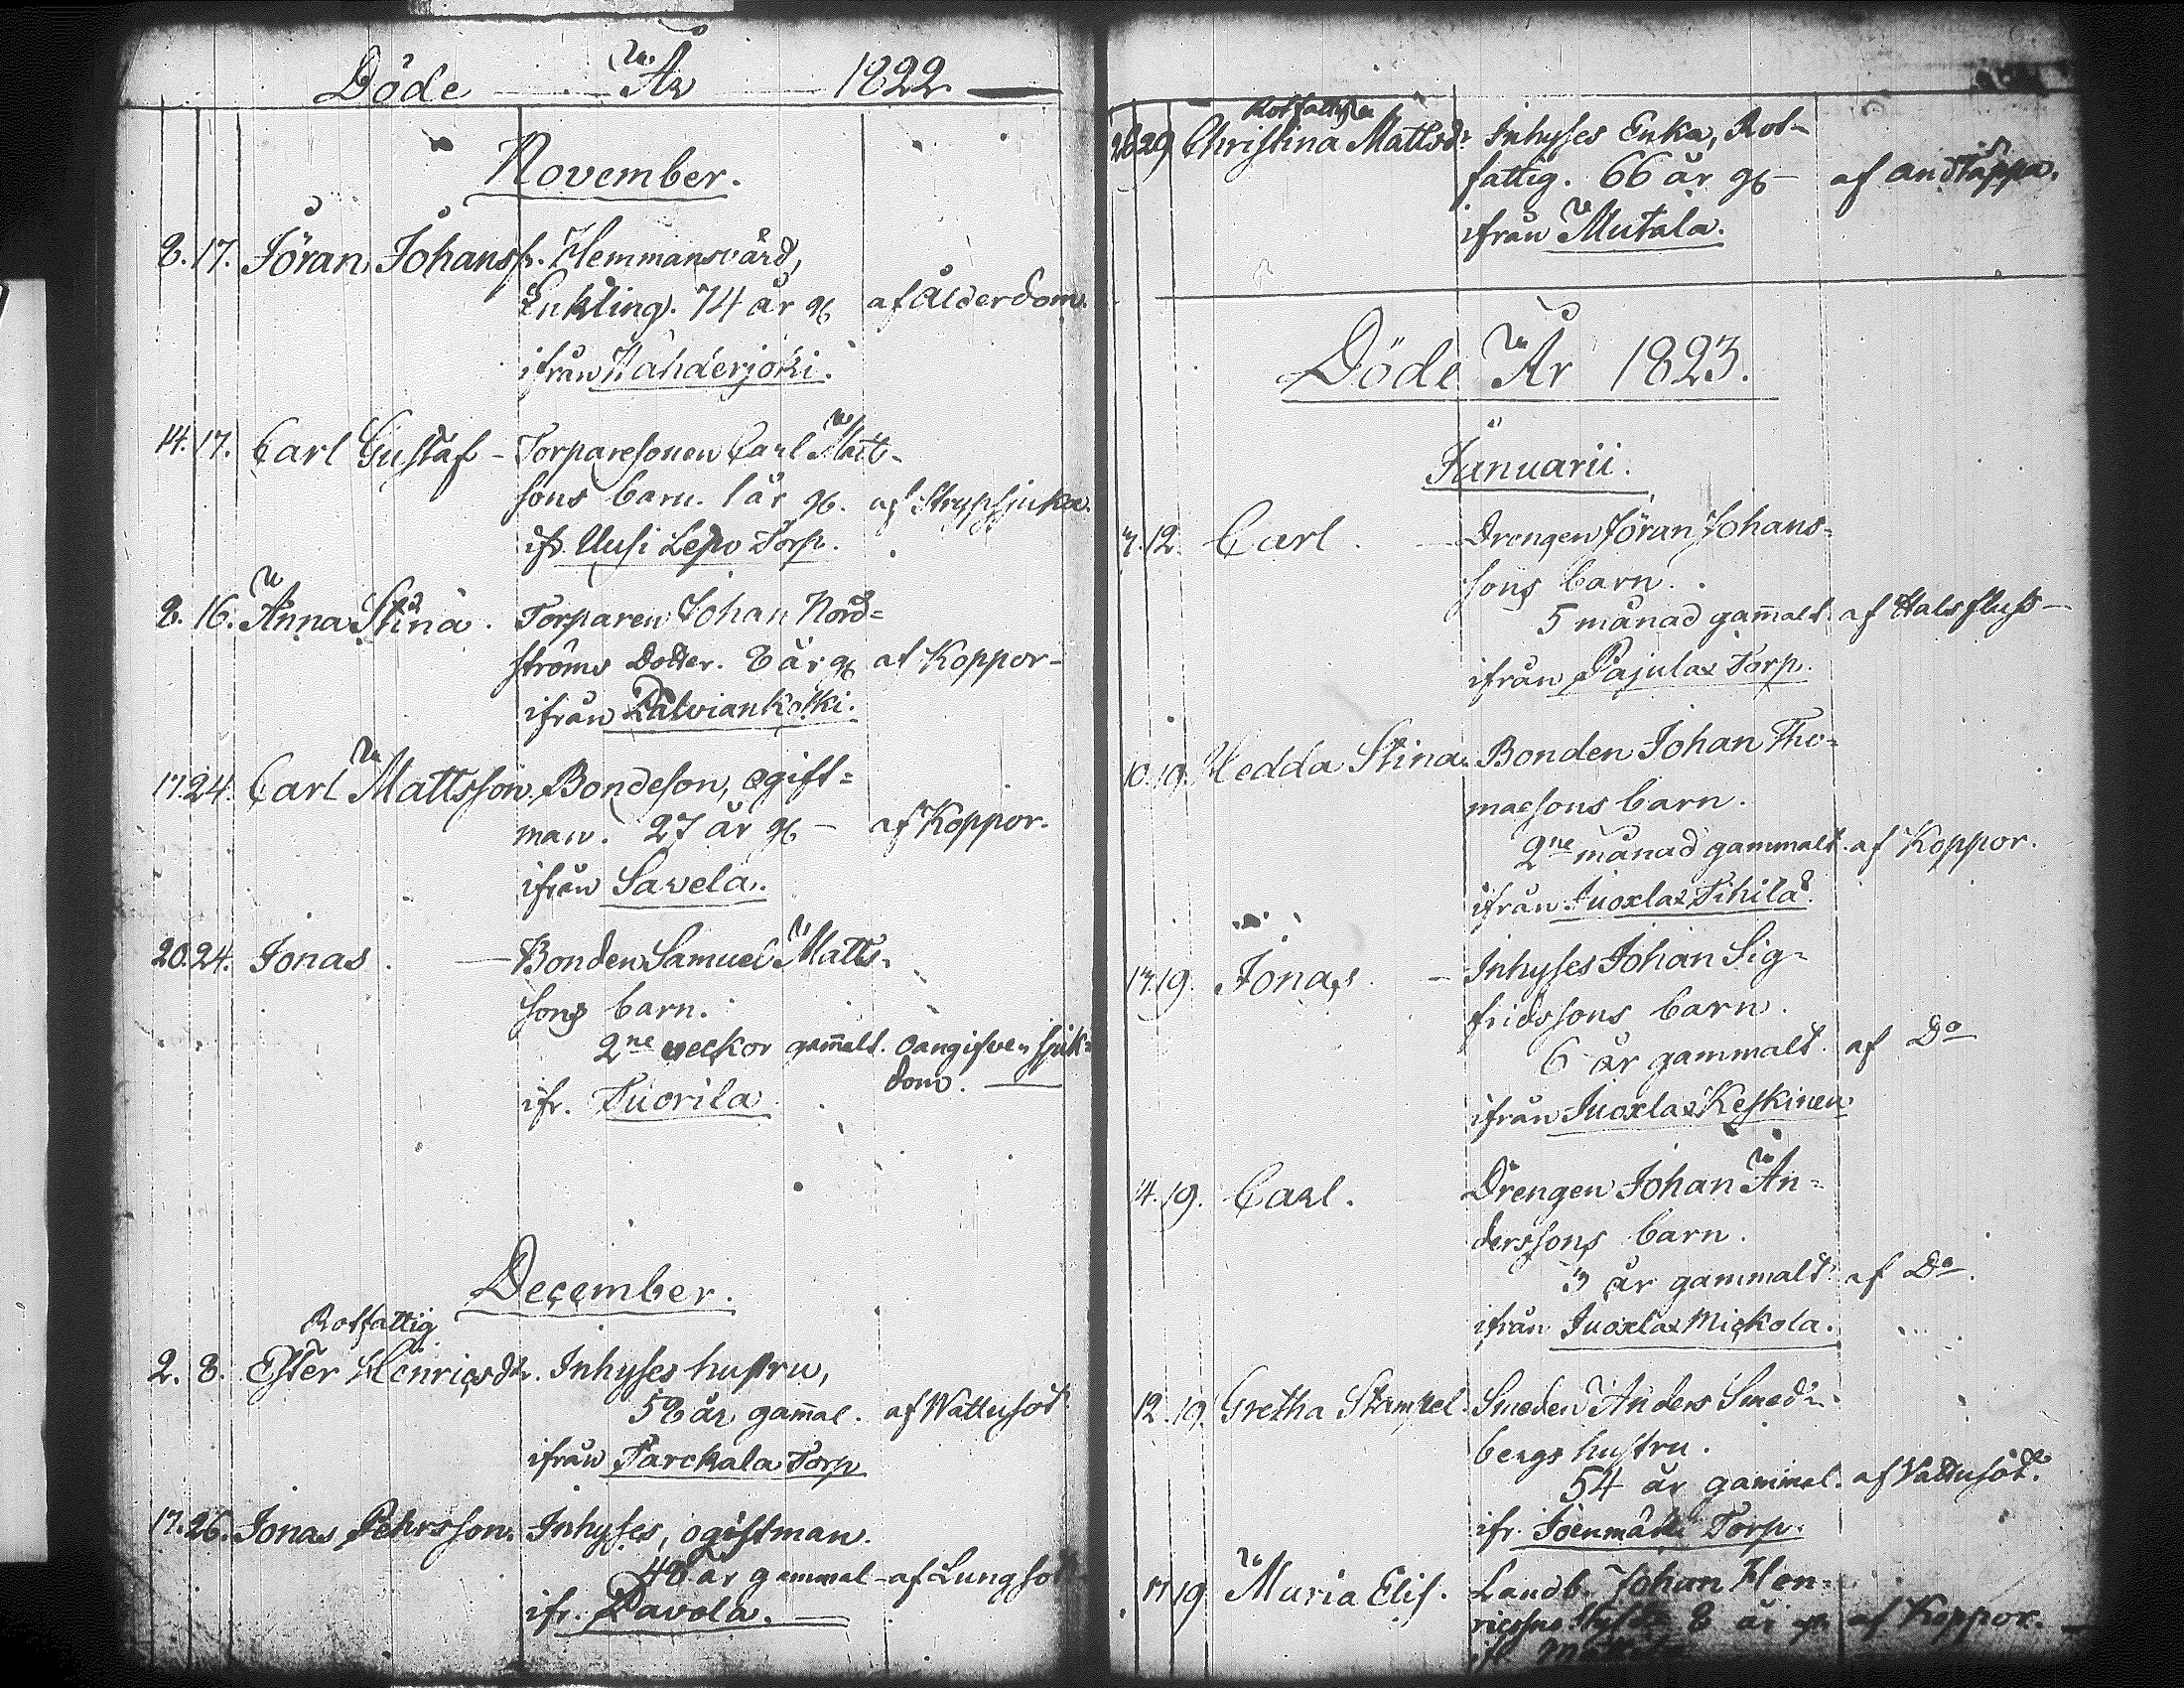 Döde År 1822
November.
8. 17. Jöran Johanss. Hemmansvärd,
Enkling. 74 år g. af ålderdom.
ifrån Kahderjoki.
14. 17. Carl Gustaf - Torparesonen Carl Matt-
sons barn. 1 år g. af Strypsjuka.
ifr. Uusi Lepo Torp.
8. 16. Anna Stina. Torparen Johan Nord=
ströms Dotter. 8 år g. af Koppor-
ifrån Palviankoski.
17. 24. Carl Mattsson. Bondeson, ogift=
man. 27 år g. - af Koppor.
ifrån Savela.
20. 24. Jonas. Bonden Samuel Matts-
sons barn.
2ne veckor gam̄alt. oangifven sjuk=
dom.
ifr. Tuorila
December.
Rotfattig
2. 8. Ester Henricsdr. Inhyses hustru,
58 år gam̄al. af Vattusot.
ifrån Parckala Torp
17. 26. Jonas Pehrsson. Inhyses, ogift man.
48 år gammal - af Lungsot
ifr. Pavola.
Rotfattiga
26 29 Christina Mattsdr. Inhyses Enka, Rot-
fattig. 66 år g. - af andtäppa.
ifrån Mutala.
Döde År 1823.
Januarii.
7. 12. Carl. Drengen Jöran Johans=
sons barn.
5 månad gam̄alt. af Halsfluss -
ifrån Pajulax Torp.
10. 19. Hedda Stina. Bonden Johan Tho=
maesons barn.
2ne månad gammalt. af Koppor.
ifrån Juoxlax Tihilä.
13. 19. Jonas. - Inhyses Johan Sig=
fridssons barn.
6 år gammalt. af Do
ifrån Juoxlax Keskinen.
14. 19. Carl. Drengen Johan An=
derssons barn.
3 år gammalt. af Do.
ifrån Juoxlax Mickola.
12. 19. Gretha Stampel. Smeden Anders Smed=
bergs hustru.
54 år gammal. af Vattusot.
ifr. Torp.
17 19 Maria Elis. Landb. Johan Hen=
ricssons 8 år g. af Koppor.